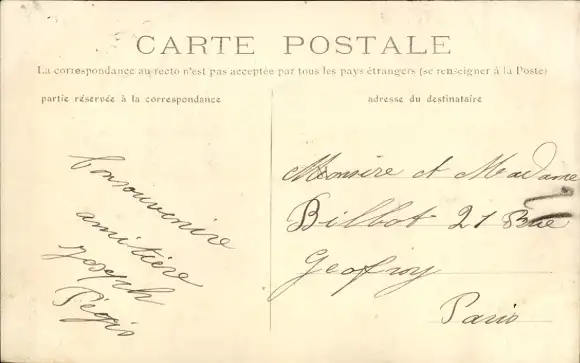 CARTE POSTALE
La correspondance au recto n'est pas acceptée par tous les pays étrangers (se renseigner à la Poste)
partie réservée à la correspondance
adresse du destinataire
bonsouvenire
amitière
Joseph
Pégis
Monsire et Madame
Bilbot 21 Rue
Geofroy
Paris